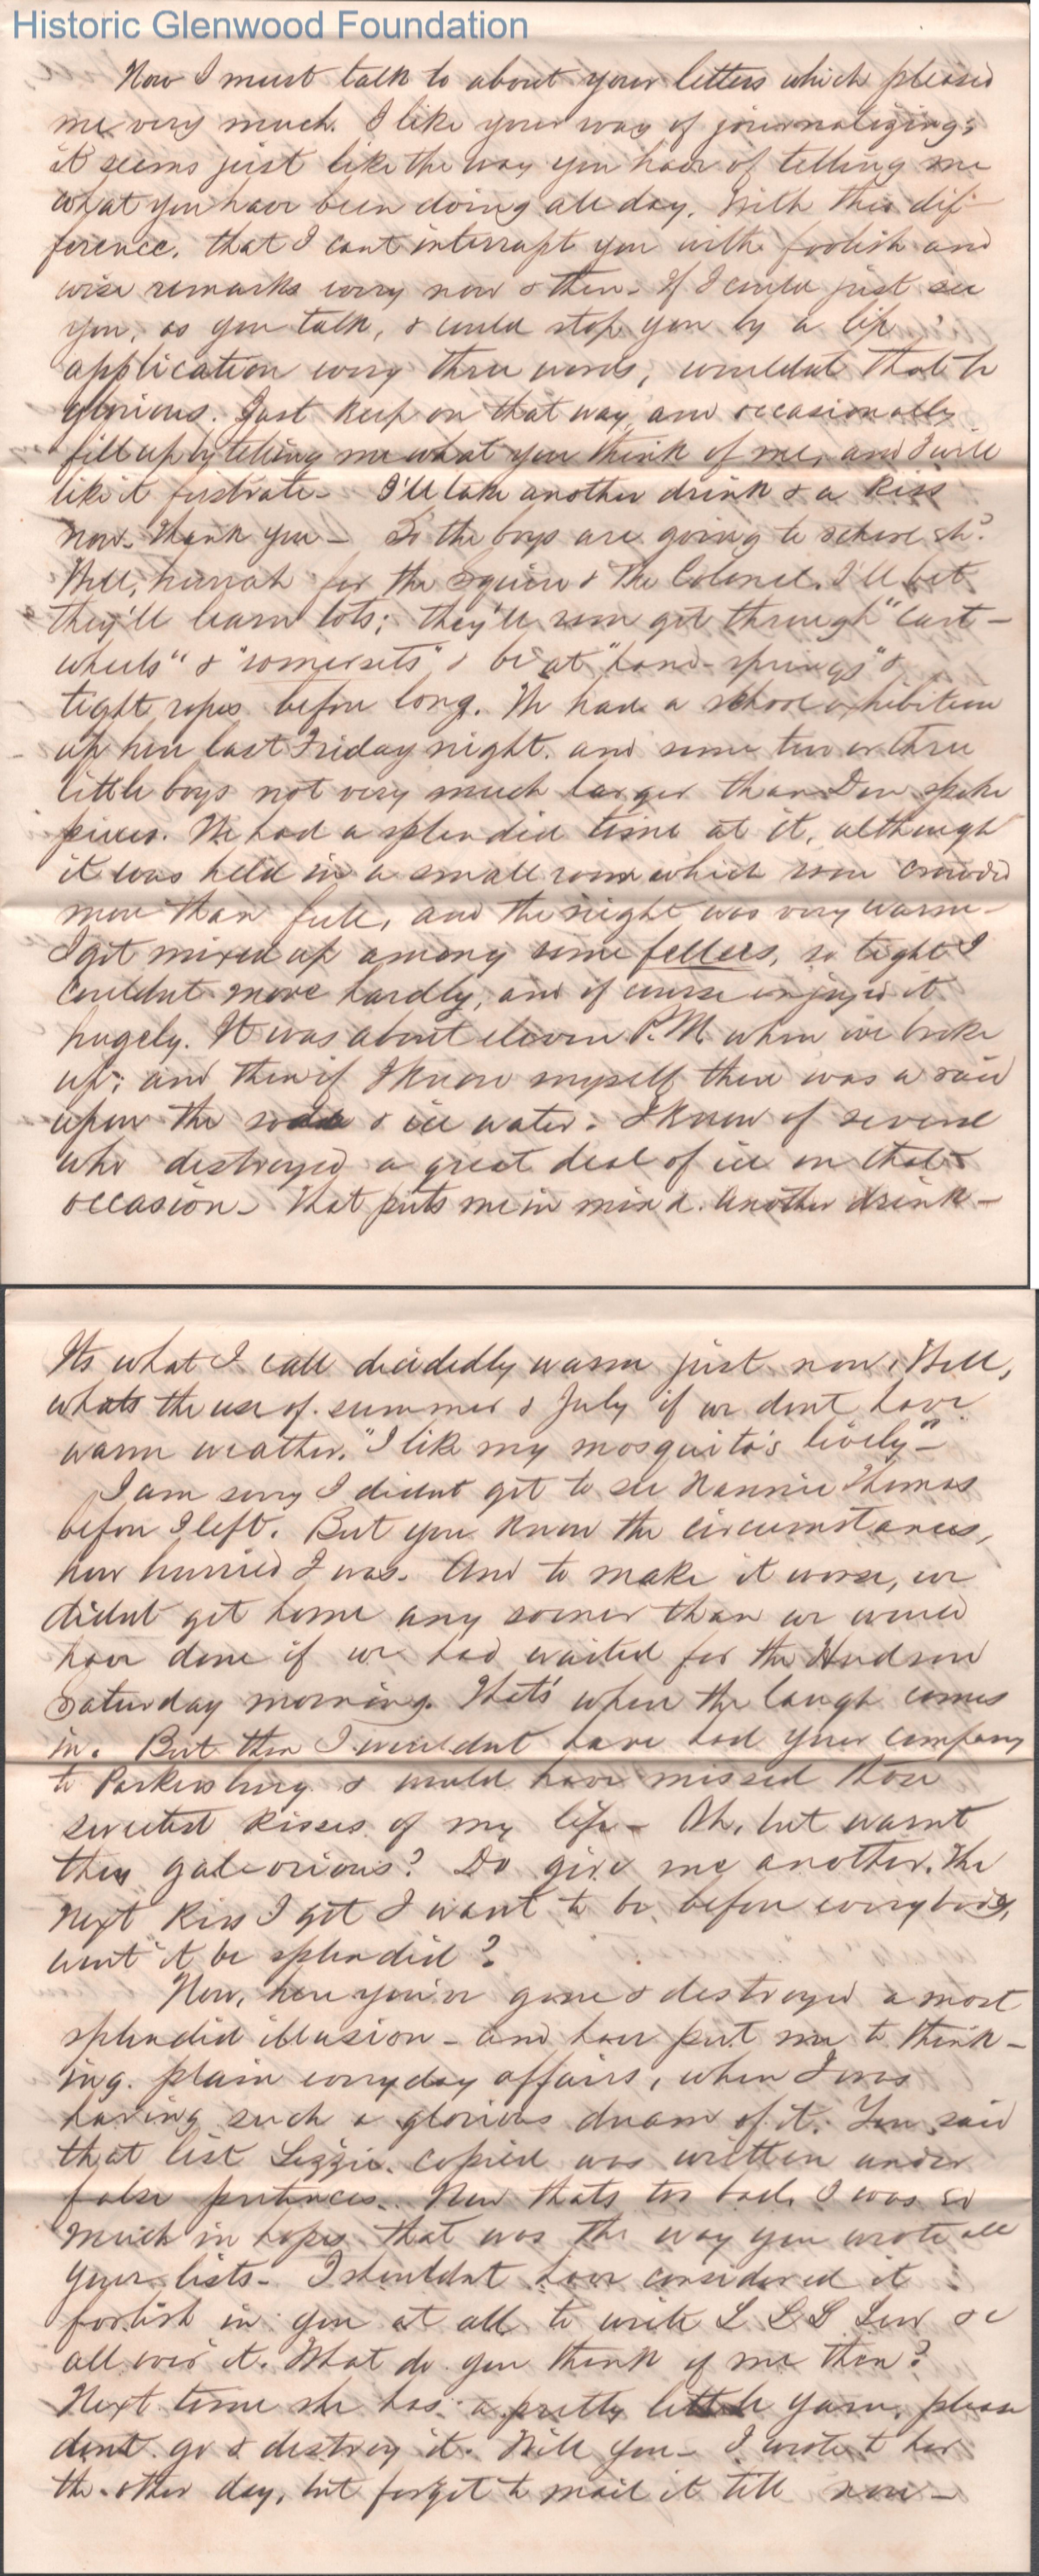 Historic Glenwood Foundation
Now I must talk to about your letters which pleased
me very much. I like your way of journalizing;
it seems just like the way you have of telling me
what you have been doing all day. With this dif-
ference, that I cant interrupt you with foolish and
wise remarks every now & then. If I could just see
you, as you talk, & could stop you by a lip
application every three words, wouldnt that be
glorious. Just keep on that way, and occasionally
fill up by telling me what you think of me, and I will
like it firstrate - I'll take another drink & a kiss
now. Thank you - So the boys are going to school eh?
Well, hurrah for the Squire & the Colonel. I'll bet
they'll learn lots; they'll soon get through "cart-
wheels" & "somersets" & be at "hand-springs" &
tight ropes before long. We had a school exhibition
up here last Friday night, and some two or three
little boys not very much larger than Don spoke
pieces. We had a splendid time at it, although
it was held in a small room which was crowded
more than full, and the night was very warm -
I got mixed up among some fellers, so tight I
couldnt move hardly, and of course enjoyed it
hugely. It was about eleven P.M. when we broke
up; and then if I know myself there was a raid
upon the soda & ice water. I know of several
who destroyed a great deal of ice on that
occasion - That puts me in mind. Another drink -
Its what I call decidedly warm just now. Well,
whats the use of summer & July if we dont have
warm weather. "I like my mosquito's lively" -
I am sorry I didnt get to see Nannie Thomas
before I left. But you know the circumstances,
how hurried I was. And to make it worse, we
didnt get home any sooner than we would
have done if we had waited for the Hudson
Saturday morning. That's where the laugh comes
in. But then I wouldnt have had your company
to Parkersburg & would have missed those
sweetest kisses of my life - Oh, but wasnt
they galeorious? Do give me another. The
next kiss I get I want to be before everybody,
wont it be splendid?
Now, here you've gone & destroyed a most
splendid illusion - and have put me to think-
ing. plain everyday affairs, when I was
having such a glorious dream of it. You said
that list Lizzie copied was written under
false pretences. Now thats too bad. I was so
much in hopes that was the way you wrote all
your lists - I shouldnt have considered it
foolish in you at all to write L L G Lew &c
all over it. What do you think of me then?
Next time she has a pretty little yarn, please
dont go & destroy it. Will you - I wrote to her
the other day, but forgot to mail it till now -